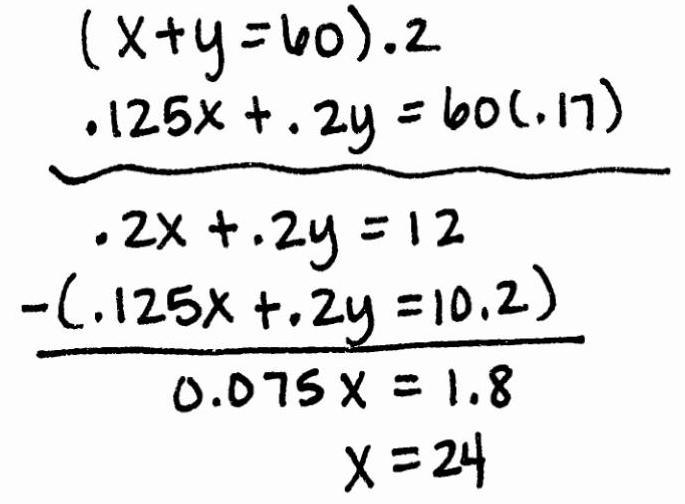 (x+y=60).2
.125x+.2y=60(.17)
.2x+.2y=12
-(.125x+.2y=10.2)
0.075x=1.8
x=24